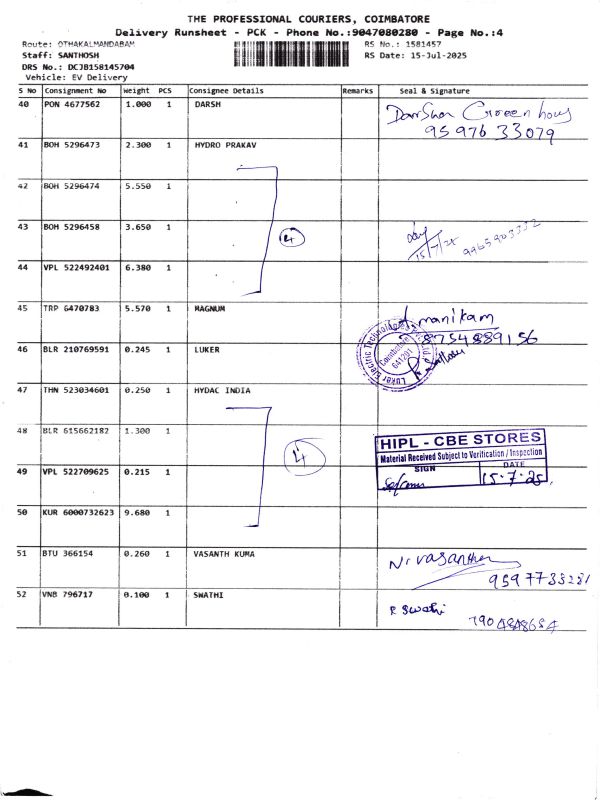 THE PROFESSIONAL COURIERS, COIMBATORE
Delivery Runsheet - PCK - Phone No.:9047080280 - Page No.:4
Route: OTHAKALMANDABAM
RS No.: 1581457
Staff: SANTHOSH
RS Date: 15-Jul-2025
DRS No.: DCJB158145704
Vehicle: EV Delivery
S No Consignment No Weight PCS Consignee Details Remarks Seal & Signature
40 PON 4677562 1.000 1 DARSH
Darshan Green hous
95976 33079
41 BOH 5296473 2.300 1 HYDRO PRAKAV
42 BOH 5296474 5.550 1
43 BOH 5296458 3.650 1
4
15/7/25 9965903352
44 VPL 522492401 6.380 1
45 TRP 6470783 5.570 1 MAGNUM
manikam
8754889156
46 BLR 210769591 0.245 1 LUKER
Luker Electric Technologies Pvt. Ltd.
Coimbatore
641201
47 THN 523034601 0.250 1 HYDAC INDIA
48 BLR 615662182 1.300 1
4
HIPL - CBE STORES
Material Received Subject to Verification / Inspection
SIGN DATE
15.7.25
49 VPL 522709625 0.215 1
50 KUR 6000732623 9.680 1
51 BTU 366154 0.260 1 VASANTH KUMA
N. Vasanth
9597733281
52 VNB 796717 0.100 1 SWATHI
R Swathi
7904848654